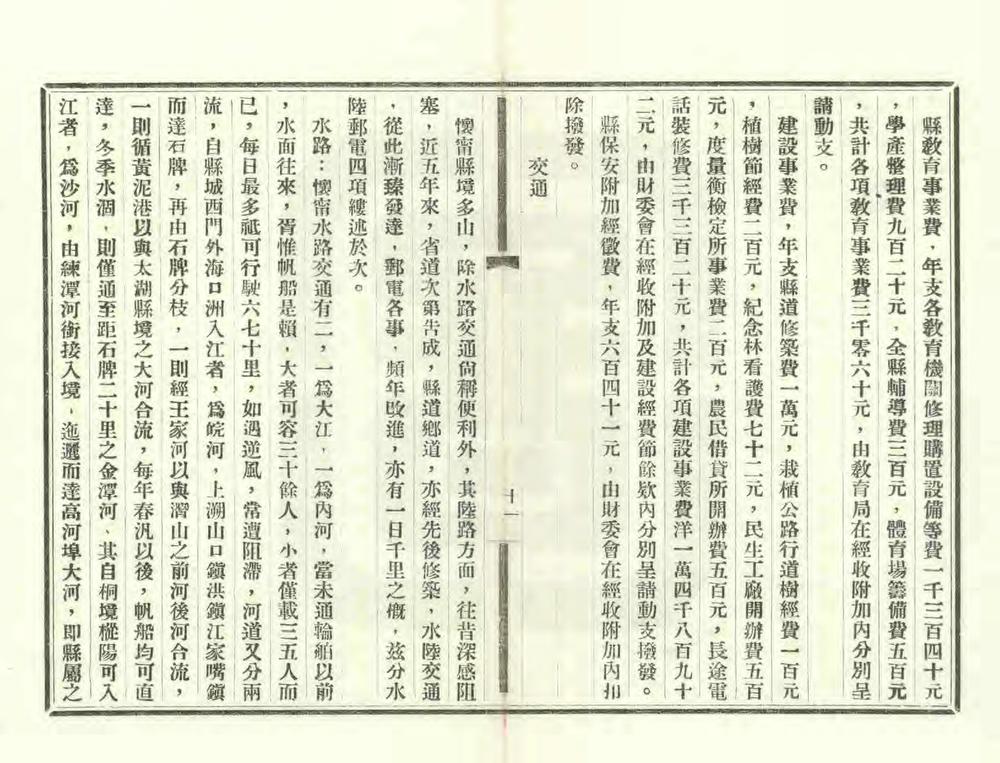 縣敎育事業費，年支各敎育機關修理購置設備等費一千三百四十元
，學產整理費九百二十元，全縣輔導費三百元，體育場籌備費五百元
，共計各項敎育事業費三千零六十元，由敎育局在經收附加內分別呈
請動支。
建設事業費，年支縣道修築費一萬元，栽植公路行道樹經費一百元
，植樹節經費二百元，紀念林看護費七十二元，民生工廠開辦費五百
元，度量衡檢定所事業費二百元，農民借貸所開辦費五百元，長途電
話裝修費三千三百二十元，共計各項建設事業費洋一萬四千八百九十
二元，由財委會在經收附加及建設經費節餘欵內分別呈請動支撥發。
縣保安附加經徵費，年支六百四十一元，由財委會在經收附加內扣
除撥發。
交通
十一
懷甯縣境多山，除水路交通尙稱便利外，其陸路方面，往昔深感阻
塞，近五年來，省道次第告成，縣道鄕道，亦經先後修築，水陸交通
，從此漸臻發達，郵電各事，頻年改進，亦有一日千里之慨，茲分水
陸郵電四項縷述於次。
水路：懷甯水路交通有二，一爲大江，一爲內河，當未通輪舶以前
，水面往來，胥惟帆船是賴，大者可容三十餘人，小者僅載三五人而
已，每日最多祗可行駛六七十里，如遇逆風，常遭阻滯，河道又分兩
流，自縣城西門外海口洲入江者，爲皖河，上溯山口鎭洪鎭江家嘴鎭
而達石牌，再由石牌分枝，一則經王家河以與潛山之前河後河合流，
一則循黃泥港以與太湖縣境之大河合流，每年春汎以後，帆船均可直
達，冬季水涸，則僅通至距石牌二十里之金潭河、其自桐境樅陽可入
江者，爲沙河，由練潭河銜接入境，迤邐而達高河埠大河，卽縣屬之